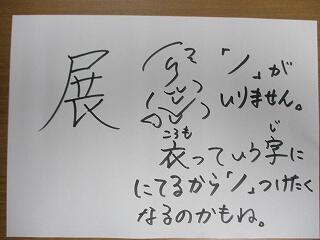 展
「ノ」が
いりません。
ころも じ
衣っていう字に
にてるから「ノ」つけたく
なるのかもね。